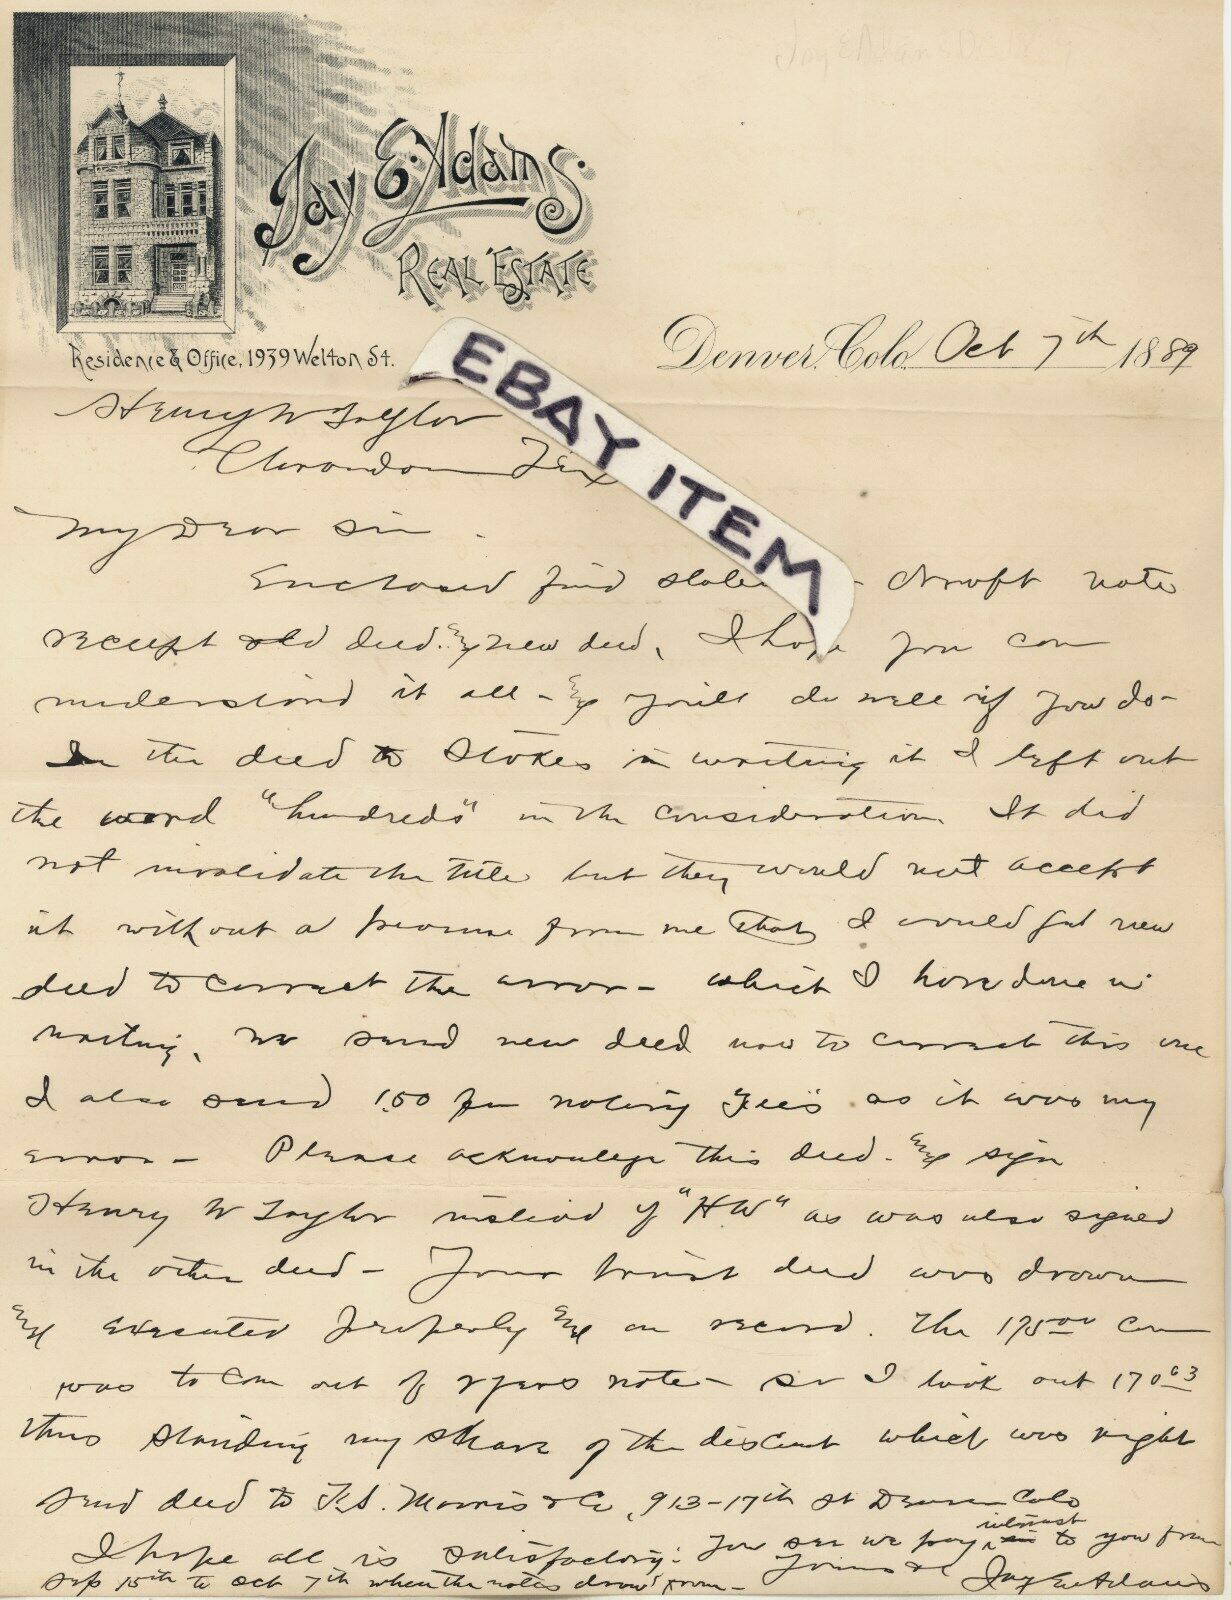 Jay E. Adams.
Real Estate
Residence & Office, 1939 Welton St.
Denver, Colo. Oct 7th 1889
EBAY ITEM
Henry W Taylor
Clarendon Tex
My Dear Sir -
Enclosed find draft note
receipt old deed & new deed, I hope you can
understand it all - & you'll do well if you do -
In the deed to Stokes in writing it I left out
the word "hundreds" in the consideration. It did
not invalidate the title but they would not accept
it without a promise from me that I would get new
deed to correct the error - which I have done in
writing, send new deed now to correct this one
I also send 1.50 for notary fees as it was my
error - Please acknowledge this deed - & sign
Henry W Taylor instead of "HW" as was also signed
in the other deed - Your trust deed was drawn
& executed properly & on record. The 175.00 com
was to com out of 2 years note - so I took out 170.63
thus standing my share of the descount which was right
Send deed to F.S. Morris & Co, 913-17th St Denver Colo
I hope all is satisfactory: You see we pay interest to you from
Sep 15th to Oct 7th when the notes draw from -
Yours &c Jay E. Adams